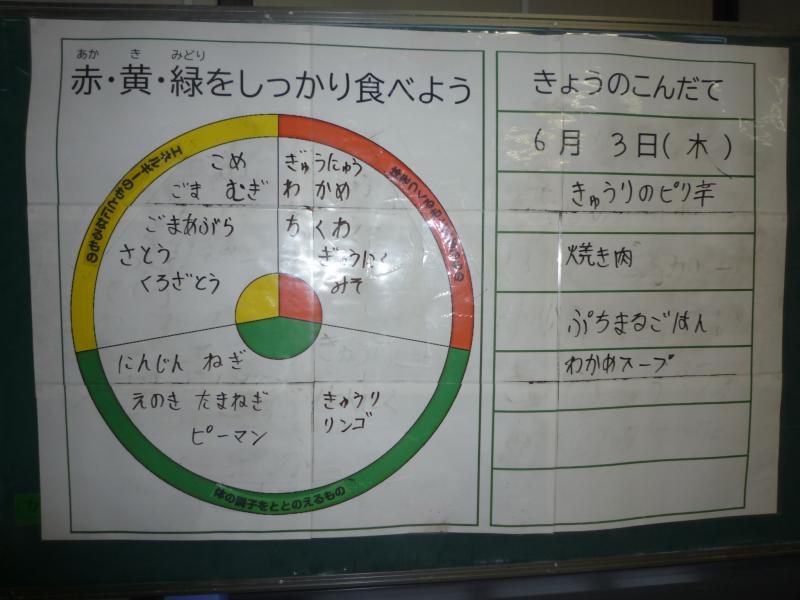 あか き みどり
赤・黄・緑をしっかり食べよう
エネルギーのもとになるもの
こめ
ごま むぎ
ごまあぶら
さとう
くろざとう
ぎゅうにゅう
わかめ
ちくわ
ぎゅうにく
みそ
にんじん ねぎ
えのき たまねぎ
ピーマン
きゅうり
リンゴ
体の調子をととのえるもの
きょうのこんだて
6月 3日(木)
きゅうりのピリ辛
焼き肉
ぷちまるごはん
わかめスープ